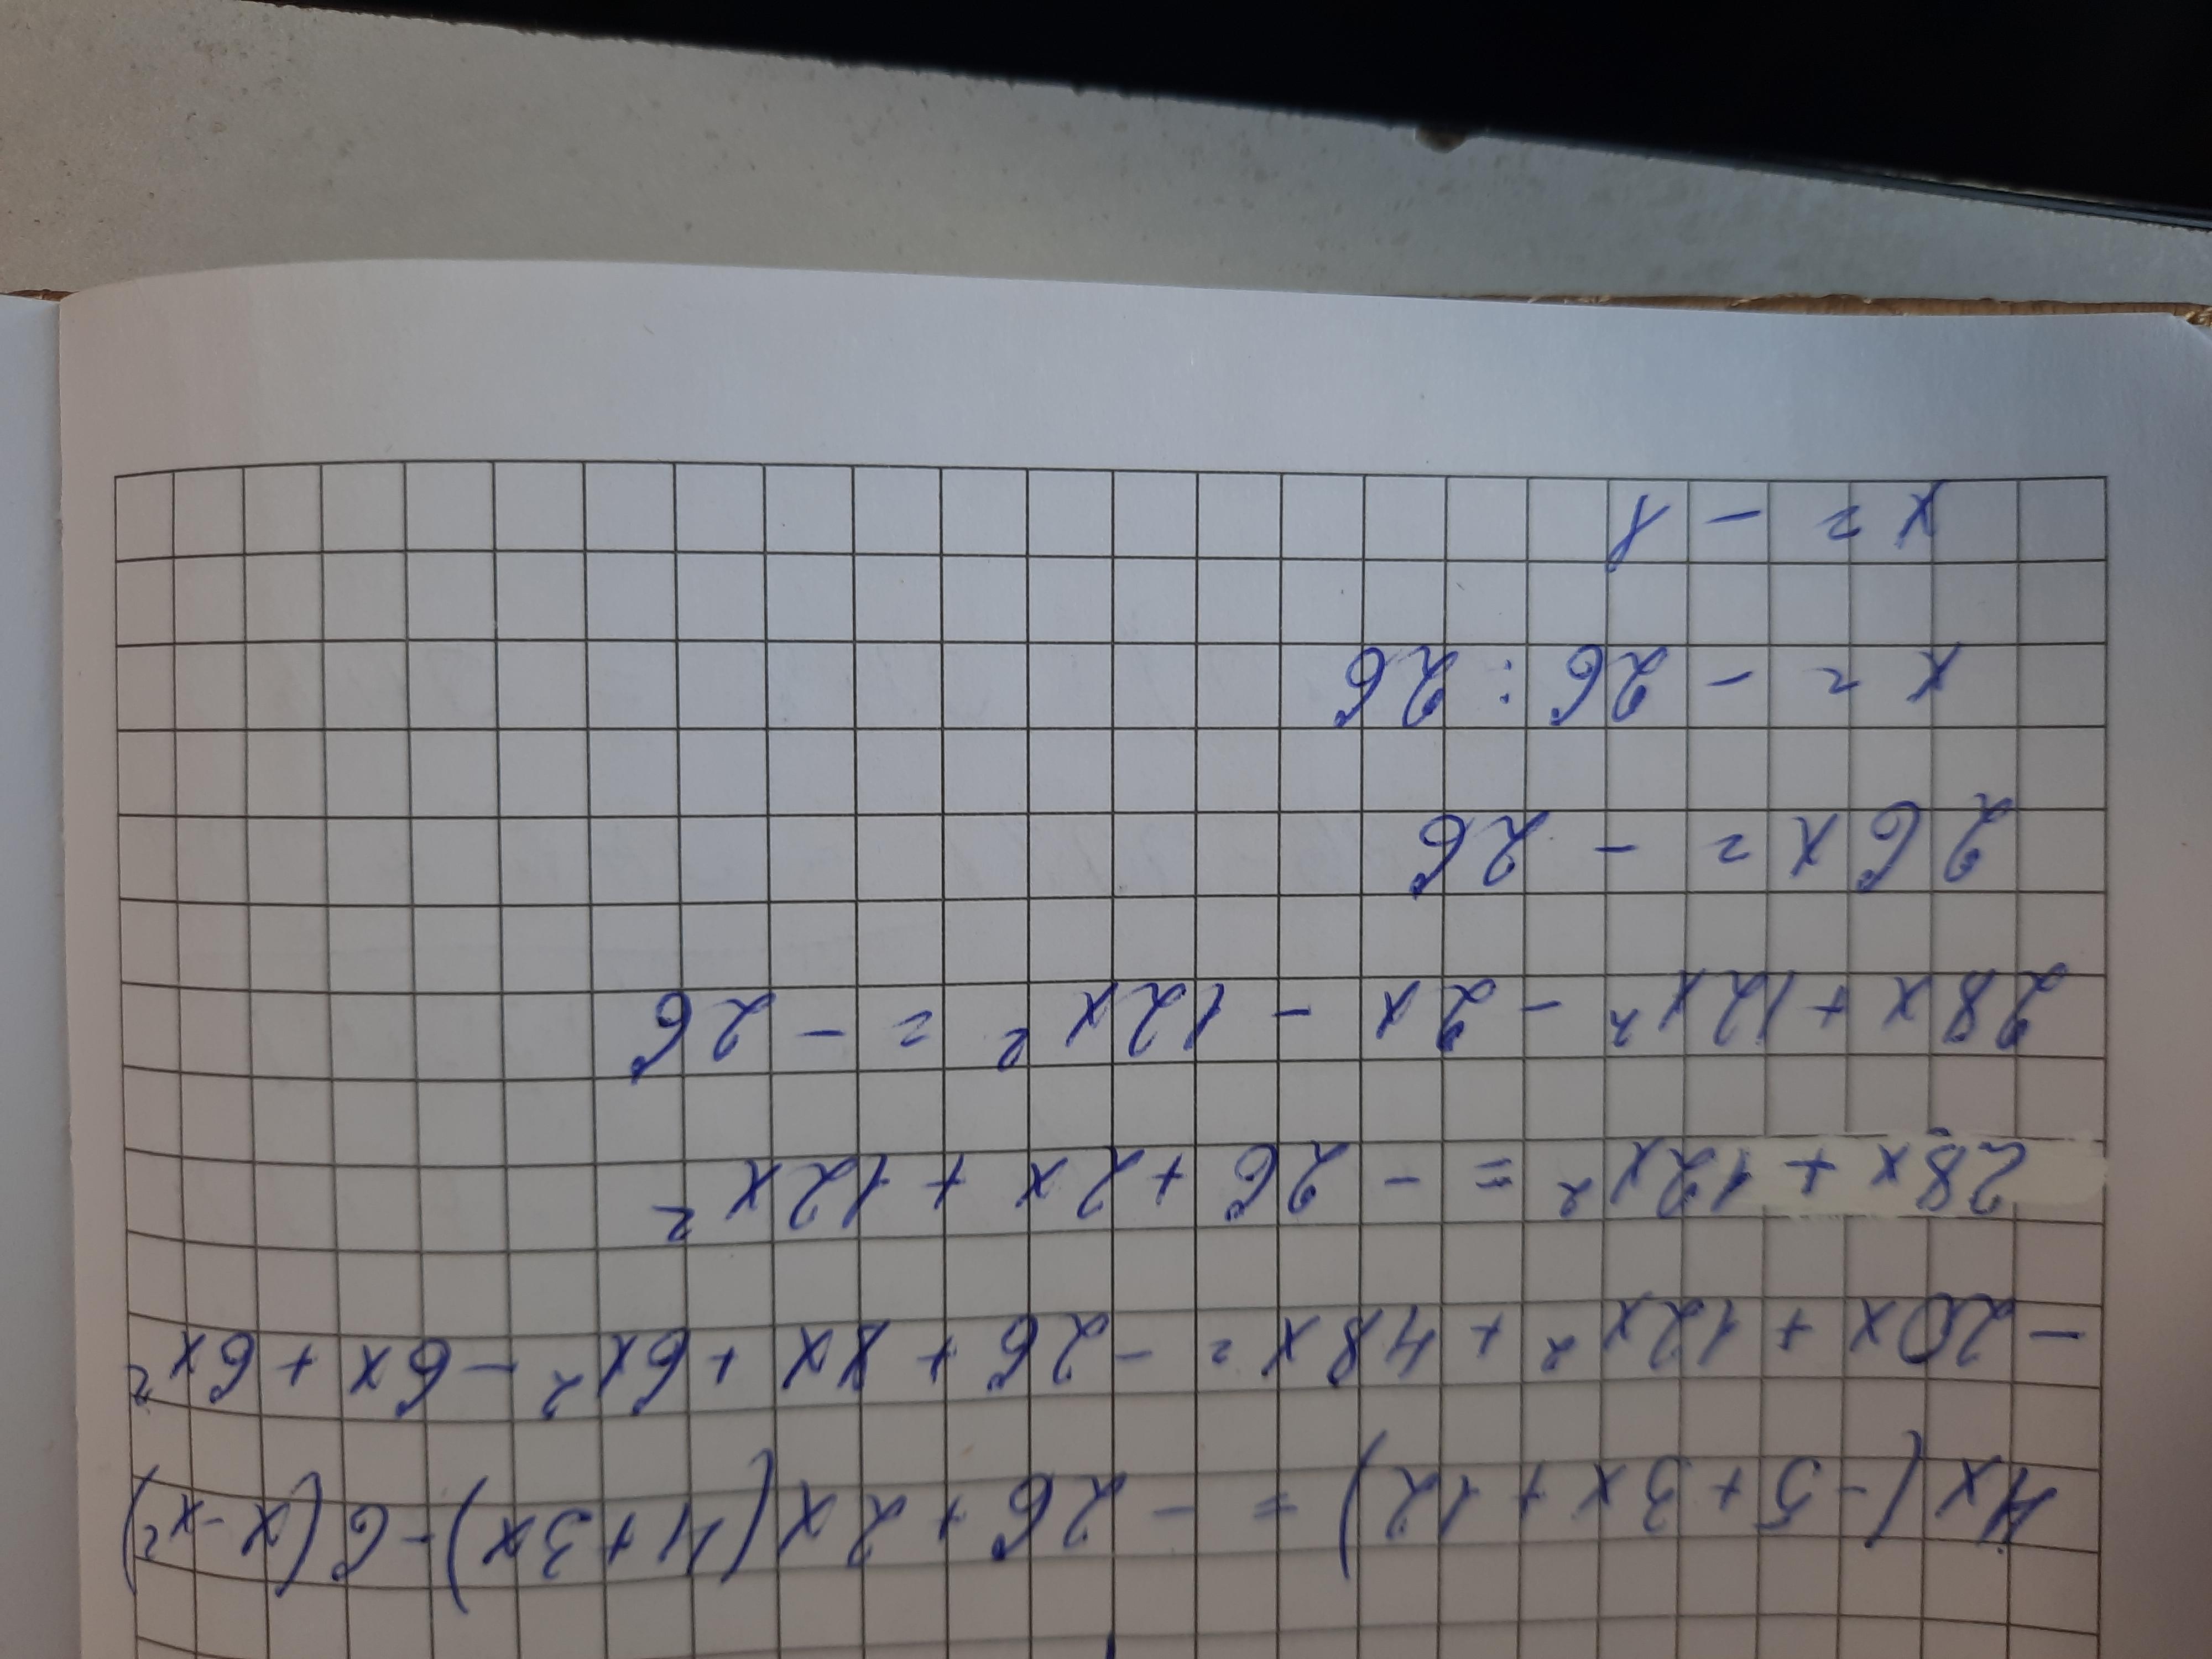 4x(-5+3x+12) = -26+2x(4+3x)-6(x-x²)
-20x+12x²+48x=-26+8x+6x²-6x+6x²
28x+12x²=-26+2x+12x²
28x+12x²-2x-12x²=-26
26x=-26
x=-26:26
x=-1